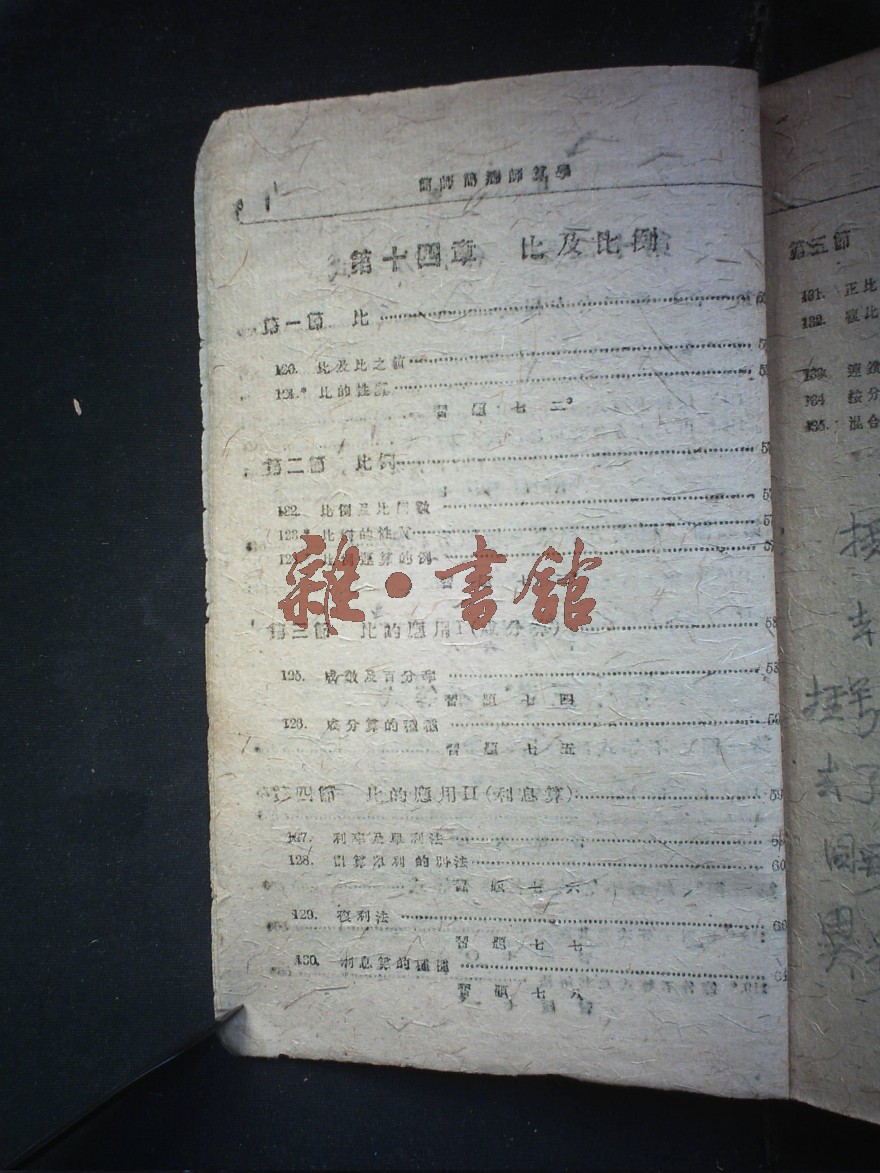 簡師簡鄉師算學
第十四章 比及比例
第一節 比
120. 比及比之值
121.* 比的性質
習題七二
第二節 比例
122. 比例及比例數
123.* 比例的性質
比例運算的例
習題七
第三節 比的應用I(成分算) 58
125. 成數及百分率 58
習題七四
126. 成分算的種類
習題七五
第四節 比的應用II(利息算) 59
127. 利率及單利法
128. 計算單利的別法 60
習題七六
129. 複利法 60
習題七七
130. 利息算的種類 61
習題七八
雜·書館
第五節
131. 正比
132. 複比
133. 連鎖
134 按分
135. 混合